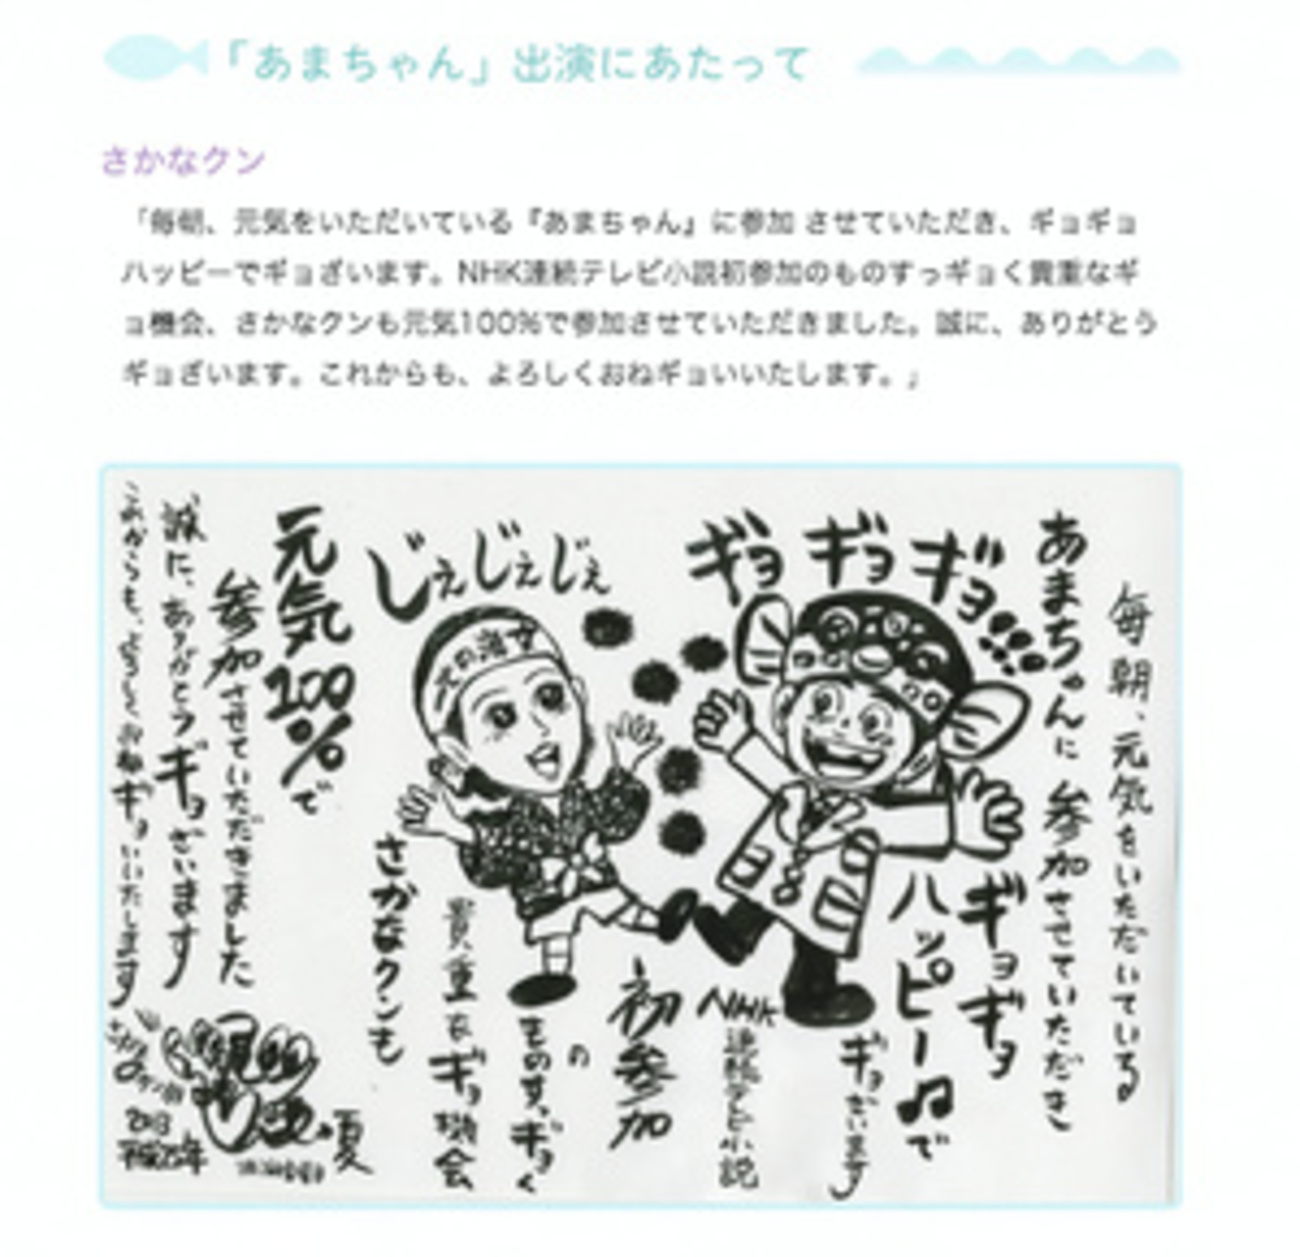 「あまちゃん」出演にあたって
さかなクン
「毎朝、元気をいただいている『あまちゃん』に参加 させていただき、ギョギョ
ハッピーでギョざいます。NHK連続テレビ小説初参加のものすっギョく貴重なギ
ョ機会、さかなクンも元気100%で参加させていただきました。誠に、ありがとう
ギョざいます。これからも、よろしくおねギョいいたします。」
毎朝、元気をいただいている
あまちゃんに参加させていただき
ギョギョギョ
ギョギョ
ハッピー♫で
ギョざいます
NHK
連続テレビ小説
初参加
の
ものすっギョく
貴重なギョ機会
じぇじぇじぇ
北の海女
さかなクンも
元気100%で
参加させていただきました
誠に、ありがとうギョざいます
これからも、よろしくお願ギョいいたします
2013
平成25年
夏